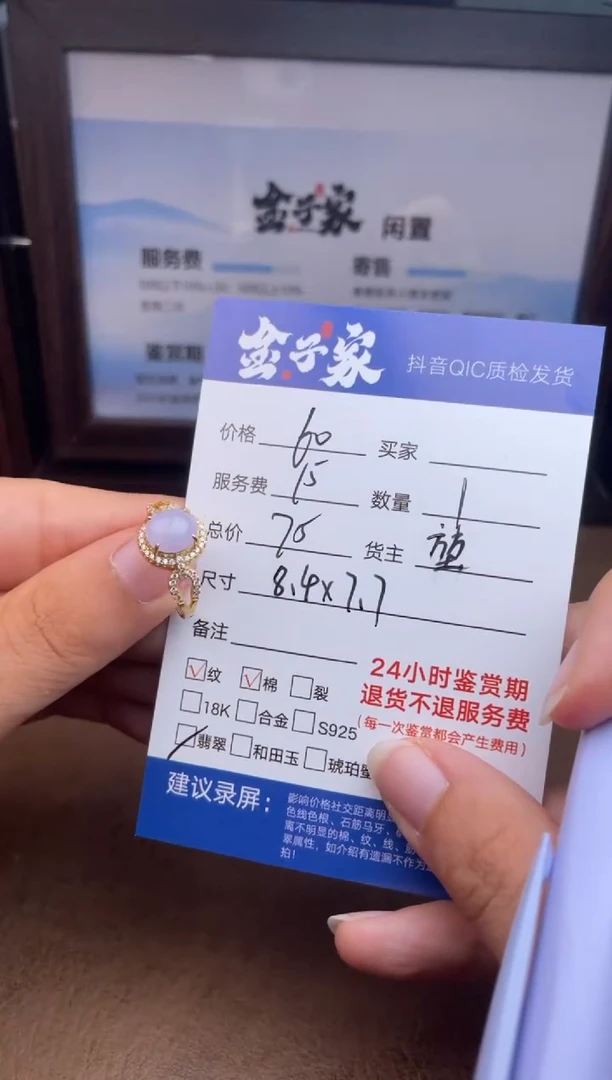 金子家 闲置
服务费 寄售
鉴赏期
金子家 抖音QIC质检发货
价格 60 买家
服务费 15 数量 1
总价 75 货主
尺寸 8.4x7.7
备注
纹 棉 裂
18K 合金 S925
翡翠 和田玉 琥珀
24小时鉴赏期
退货不退服务费
(每一次鉴赏都会产生费用)
建议录屏：
影响价格社交距离明
色线色根、石筋马牙，
离不明显的棉、纹、线、
翠属性，如介绍有遗漏不作为
拍！